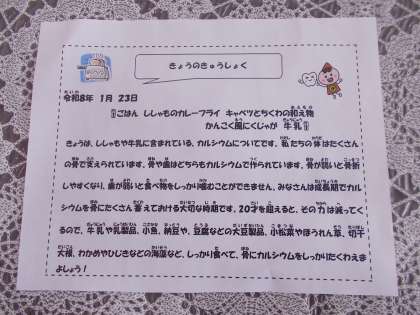 きょうのきゅうしょく
令和8年 1月 23日
ごはん ししゃものカレーフライ キャベツとちくわの和え物
かんこく風にくじゃが 牛乳
きょうは、ししゃもや牛乳に含まれている、カルシウムについてです。私たちの体はたくさん
の骨で支えられています。骨や歯はどちらもカルシウムで作られています。骨が弱いと骨折
しやすくなり、歯が弱いと食べ物をしっかり噛むことができません。みなさんは成長期でカル
シウムを骨にたくさん蓄えておける大切な時期です。20才を超えると、その力は減ってく
るので、牛乳や乳製品、小魚、納豆や、豆腐などの大豆製品、小松菜やほうれん草、切干
大根、わかめやひじきなどの海藻など、しっかり食べて、骨にカルシウムをしっかりたくわえま
よしょう！